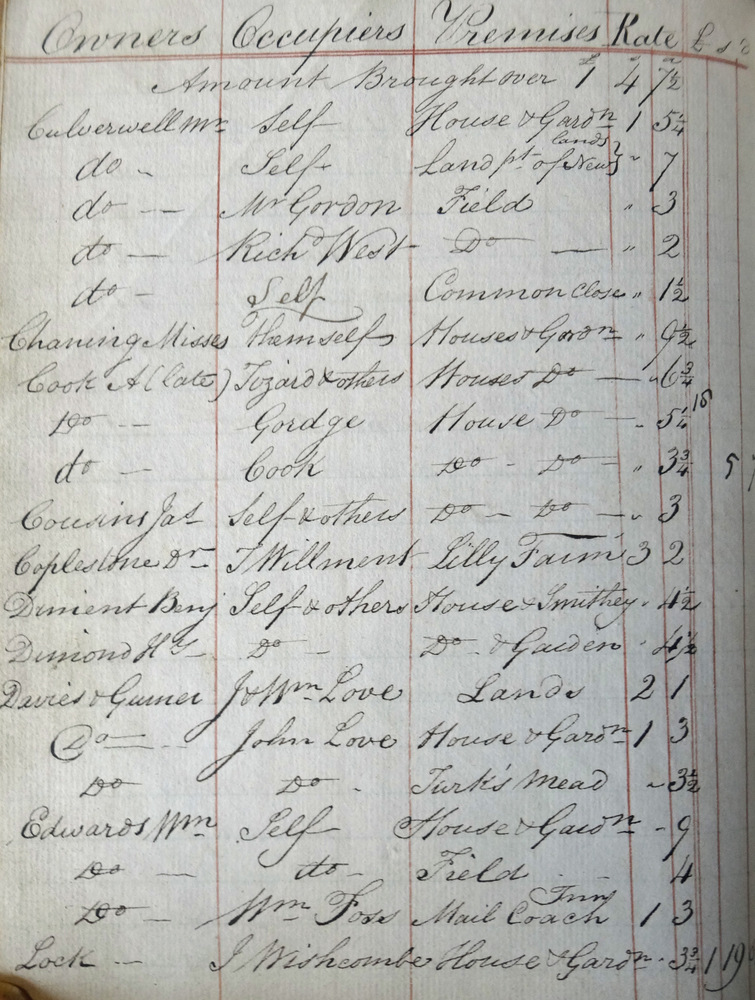 Owners Occupiers Premises Rate £ s d
Amount Brought over £1 4 7½
Culverwell Mr Self House & Gardn 1 5¼
do - Self Land pt of New lands " 7
do - Mr Gordon Field " 3
do - Richd West Do - " 2
do - Self Common Close " 1½
Chaning Misses themselfs Houses & Gardn " 9½
Cook A (late) Tozard & others Houses Do - " 6¾
Do - Gordge House Do - " 5¼
do - Cook Do - Do - " 3¾
Cousins Jas Self & others Do - Do - " 3
Coplestone Dr - T Willment Lilly Farm 3 2
Diment Benj Self & others House & Smithey " 4½
Dimond Do - Do - & Garden " 4½
Davies & Gurner J & Wm Love Lands 2 1
Do - John Love House & Gardn 1 3
Do Do - Turk's Mead - 3½
Edwards Wm Self House & Gardn - 9
Do - do - Field - 4
Do - Wm Foss Mail Coach Inn 1 3
Lock - J Wishcombe House & Gardn - 3¾ 1 19